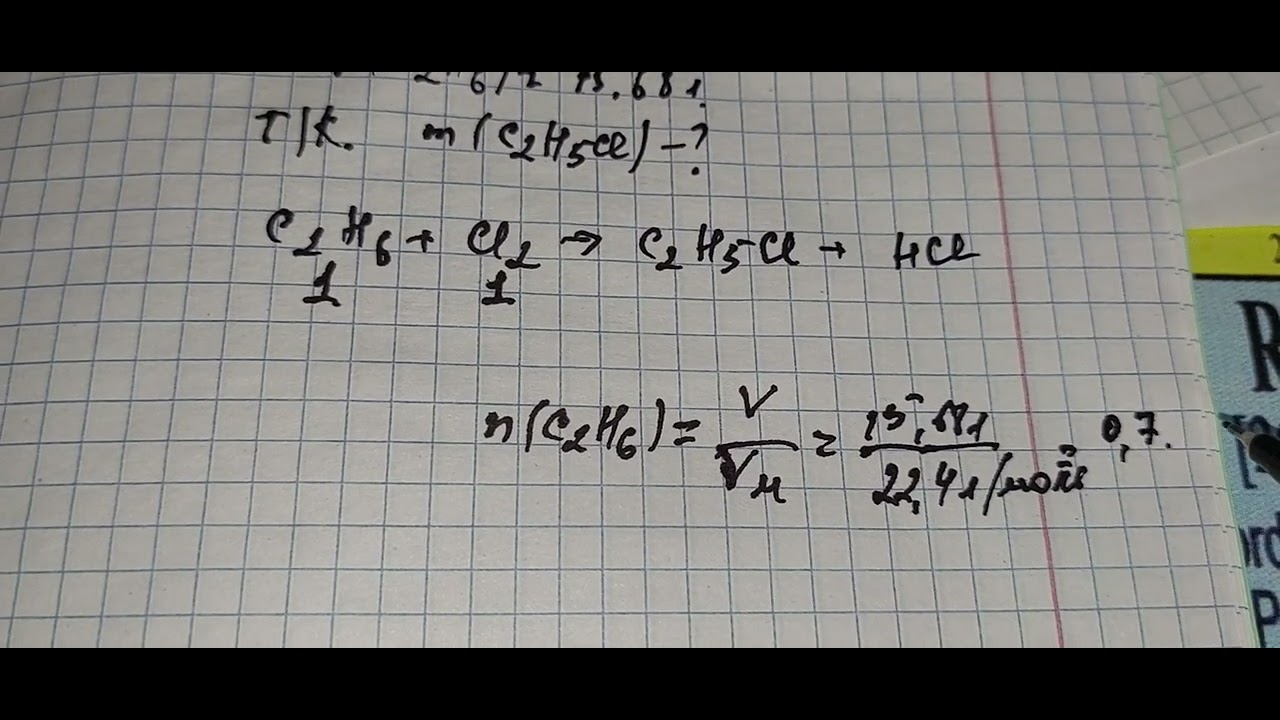 Т/к. m(C₂H₅Cl) – ?
C₂H₆ + Cl₂ → C₂H₅–Cl + HCl
1 1
n(C₂H₆) = V/Vм = 15,68л/22,4л/моль = 0,7.
R